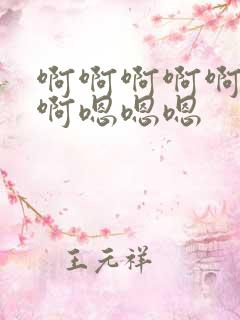 啊啊啊啊啊
啊嗯嗯嗯
王元祥